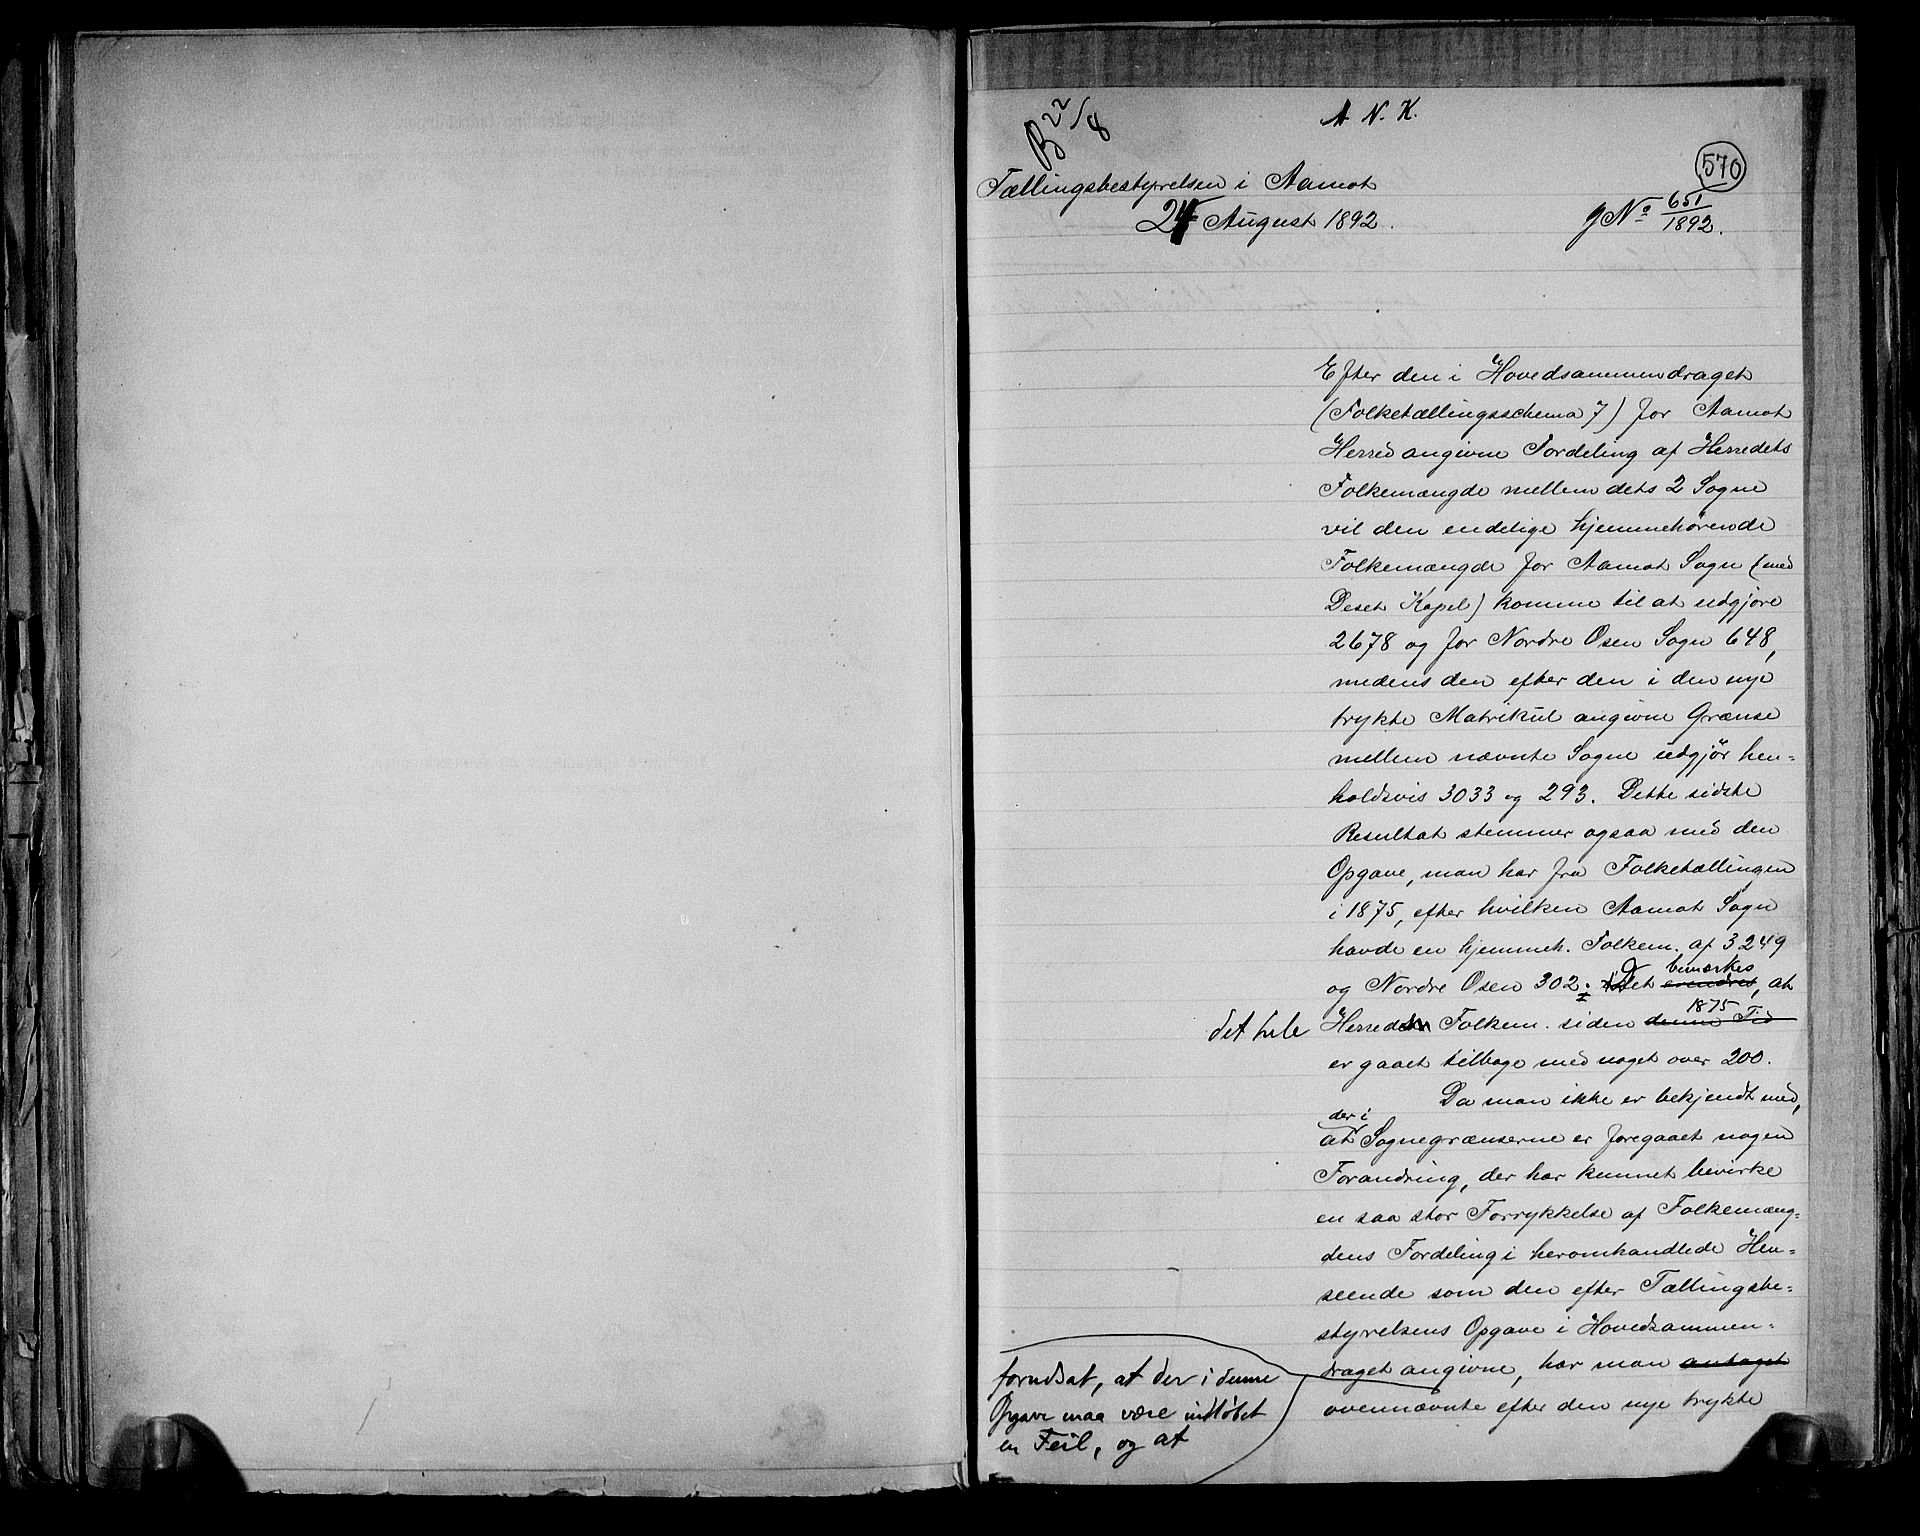 A. N. K.
B 22/8
570
Tællingsbestyrelsen i Aamot
24 August 1892.
J No 651/1892.
Efter den i Hovedsammendraget
(Folketællingsschema 7) for Aamot
Herred angivne Fordeling af Herredets
Folkemængde mellem dets 2 Sogne
vil den endelige hjemmehørende
Folkemængde for Aamot Sogn (med
Deset Kapel) komme til at udgjøre
2678 og for Nordre Osen Sogn 648,
medens den efter den i den nye
trykte Matrikul angivne Grænse
mellem nævnte Sogne udgjør hen=
holdsvis 3033 og 293. Dette sidste
Resultat stemmer ogsaa med den
Opgave, man har fra Folketællingen
i 1875, efter hvilken Aamot Sogn
havde en hjemmeh. Folkem. af 3249
bemærkes
og Nordre Osen 302. Det, at
1875
det hele Herreds Folkem. siden denne Tid
er gaaet tilbage med noget over 200.
Da man ikke er bekjendt med,
der i
at Sognegrænserne er foregaaet nogen
Forandring, der har kunnet bevirke
en saa stor Forrykkelse af Folkemæng=
dens Fordeling i heromhandlede Hen=
seende som den efter Tællingsbe=
styrelsens Opgave i Hovedsammen=
draget angivne, har man antaget
forudsat, at der i denne
Opgave maa være indløbet
en Feil, og at
ovennævnte efter den nye trykte